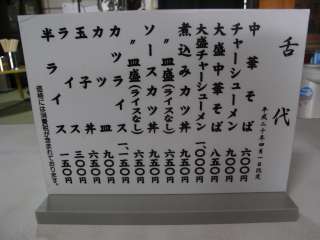 舌代
平成二十年四月一日改定
中華そば 六〇〇円
チャーシューメン 九〇〇円
大盛中華そば 八五〇円
大盛チャーシューメン
煮込みカツ丼 九五〇円
〃皿盛(ライスなし) 九五〇円
ソースカツ丼 九五〇円
〃皿盛(ライスなし) 九五〇円
カツライス 一、一五〇円
カツ 九五〇円
玉子丼 六五〇円
ライス 三〇〇円
半ライス 一五〇円
価格には消費税が含まれております。